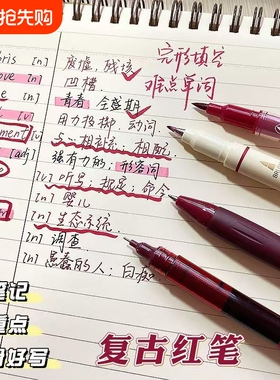 抢先购
完形填空
难点单词
bris [n] 废墟，残骸
ove [n] 凹槽
青春 全盛期
用力投掷 动词
ment [v] 与…相辅相配
[adj] 强有力的，形容词
[v] 听写，规定；命令
[n] 婴儿
[n] 生态系统
[n] 调查
[n] 愚蠢的人；白痴
笔记
重点
好写
复古红笔